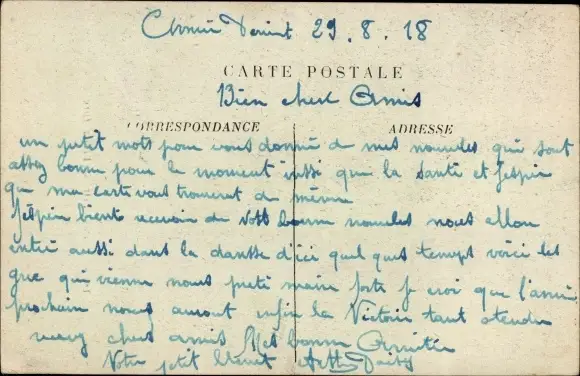 29.8.18
CARTE POSTALE
Bien chers Amis
CORRESPONDANCE
ADRESSE
un petit mots pour vous donné de mes nouvelles qui sont
assez bonne pour le moment aussi que la santé et j'espère
que ma carte vous trouverat de même
J'espère bientot recevoir de vott bonne nouvelles nous allon
entré aussi dans la dansse d'ici quel ques temps voici les
que qui vienne nous preté maire forte je croi que l'anné
prochain nous auront enfin la Victoire tant atendu
recevez chers amis Mes bonne Amitié
Votre petit